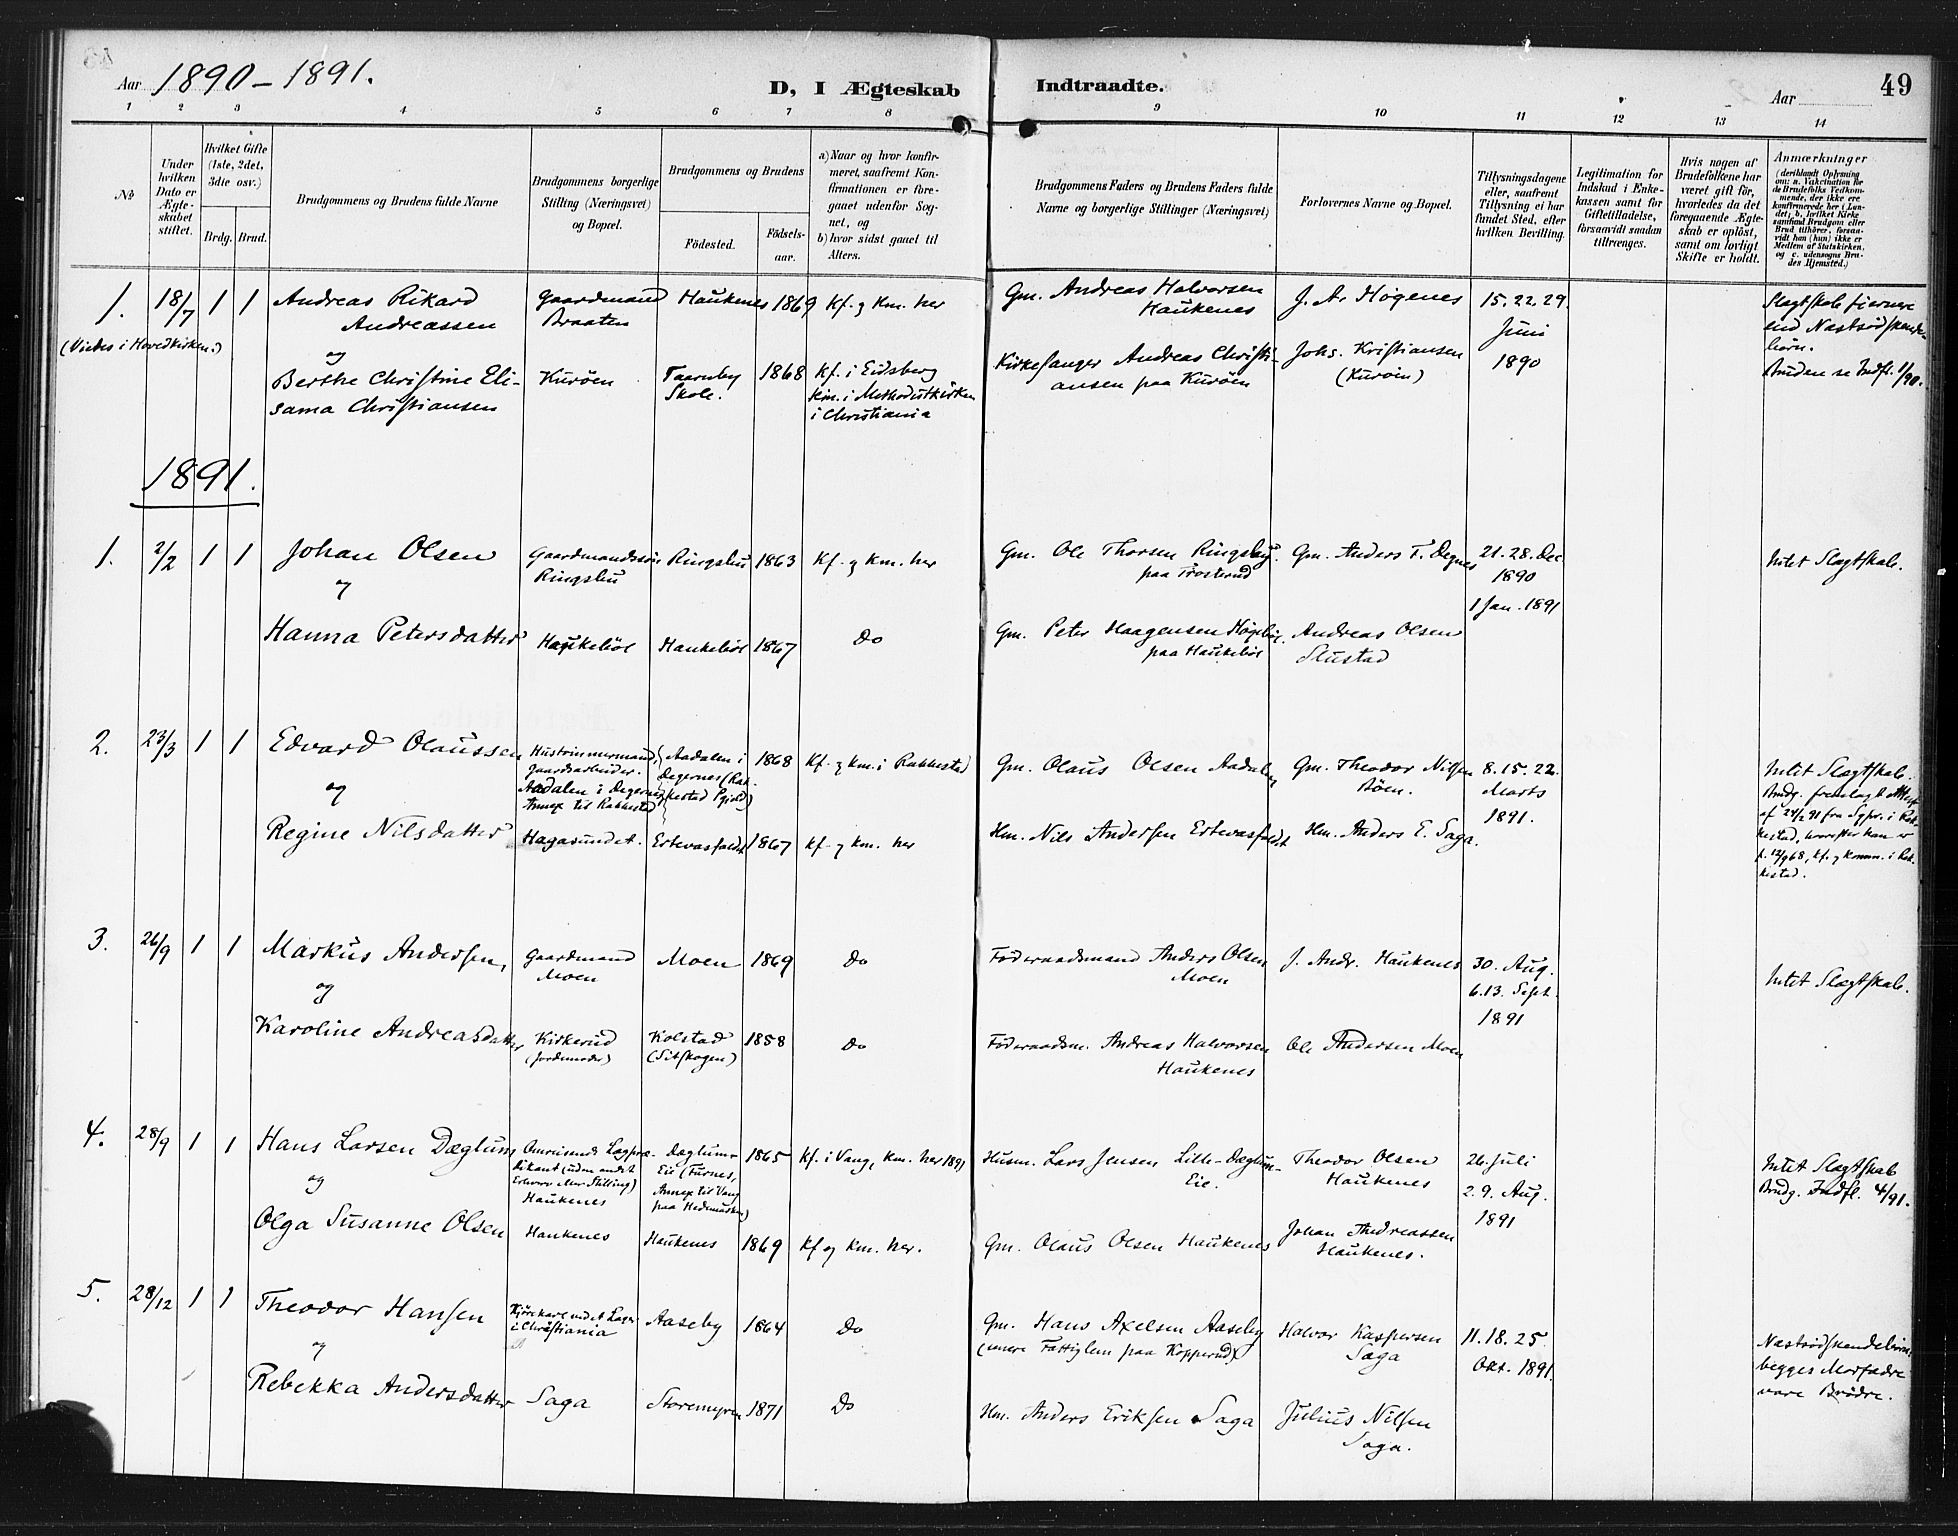 Aar 1890-1891.
D, I Ægteskab Indtraadte.
Aar
49
1 2 3 4 5 6 7 8 9 10 11 12 13 14
No
Under hvilken Dato er Ægteskabet stiftet.
Hvilket Gifte (1ste, 2det, 3die osv.)
Brdg. Brud.
Brudgommens og Brudens fulde Navne
Brudgommens borgerlige Stilling (Næringsvei) og Bopæl.
Brudgommens og Brudens
Fødested.
Fødselsaar.
a) Naar og hvor konfirmeret, saafremt Konfirmationen er foregaaet udenfor Sognet, og
b) hvor sidst gaaet til Alters.
Brudgommens Faders og Brudens Faders fulde Navne og borgerlige Stillinger (Næringsvei)
Forlovernes Navne og Bopæl.
Tillysningsdagene eller, saafremt Tillysning ei har fundet Sted, efter hvilken Bevilling.
Legitimation for Indskud i Enkekassen samt for Giftetilladelse, forsaavidt saadan tiltrænges.
Hvis nogen af Brudefolkene har været gift før, hvorledes da det foregaaende Ægteskab er opløst, samt om lovligt Skifte er holdt.
Anmærkninger
(deriblandt Oplysning om: a. Vakcination for de Brudefolks Vedkommende, der ikke ere konfirmerede her i Landet; b. hvilket Kirkesamfund Brudgom eller Brud tilhører, forsaavidt han (hun) ikke er Medlem af Statskirken, og c. udensogns Brudes Hjemsted.)
1. 18/7 1 1 Andreas Rikard Andreassen
Gaardmand Braaten
Haukenes 1869 Kf. og Km. her
Gm. Andreas Halvorsen Haukenes
J. Ar Høgenes
15. 22. 29. Juni 1890
(Vielse i Hovedkirken.)
og
Berthe Christine Elisama Christiansen
Kurøen
Taarnby Skole.
1868
Kf. i Eidsberg
Km. i Methodistkirken i Christiania
Kirkesanger Andreas Christiansen paa Kurøen
Johs. Kristiansen (Kurøen)
Slagtskab fiernere end Næstsødskendebørn.
Bruden se Indfl. 1/90.
1891.
1. 2/2 1 1 Johan Olsen
Gaardmandssøn Ringsbu
Ringsbu 1863 Kf. og Km. her
Gm. Ole Thorsen Ringsby paa Trosterud
Gm. Anders T. Degnes
21. 28. Dec 1890
1 Jan. 1891
Intet Slægtskab.
og
Hanna Petersdatter
Haukebøl Haukebøl 1867 Do
Gm. Peter Haagensen Høgebøl paa Haukebøl
Andreas Olsen Slustad
2. 23/3 1 1 Edvard Olaussen
Hustømmermand, Gaardsarbeider. Aadalen i Degernes, Annex til Rakkestad
Aadalen i Degernes (Rakkestad Pgjeld)
1868 Kf. og Km. i Rakkestad
Gm. Olaus Olsen Aadalen
Gm. Theodor Nilsen Bøen.
8. 15. 22. Marts 1891.
Intet Slægtskab.
Brudg. fremlagt Attest af 24/2 91 fra Sgpr. i Rakkestad, hvorefter han er f. 12/9 68, kf. og komm. i Rakkestad.
og
Regine Nilsdatter
Hagasundet. Ertevasfaldt 1867 Kf. og Km. her
Hm. Nils Andersen Ertevasfaldt
Hm. Anders E. Saga.
3. 26/9 1 1 Markus Andersen,
Gaardmand Moen
Moen 1869 Do
Føderaadsmand Anders Olsen Moen
J. Andr. Haukenes
30. Aug. 6. 13. Sept. 1891
Intet Slægtskab.
og
Karoline Andreasdatter
Kirkerud (Jordmoder)
Kolstad (Sitskogen)
1858 Do
Føderaadsm. Andreas Halvorsen Haukenes
Ole Andersen Moen
4. 28/9 1 1 Hans Larsen Dæglum
Omreisende Lægprædikant (uden andet Erhverv eller Stilling) Haukenes
Dæglum-Eie (Furnes, Annex til Vang paa Hedemarken)
1865 Kf. i Vang, Km. her 1891
Husm. Lars Jensen Lille-Dæglum-Eie.
Theodor Olsen Haukenes
26. Juli 2. 9. Aug. 1891
Intet Slægtskab
Brudg. Indfl. 4/91.
og
Olga Susanne Olsen
Haukenes Haukenes 1869 Kf og Km. her.
Gm. Olaus Olsen Haukenes
Johan Andreassen Haukenes.
5. 28/12 1 1 Theodor Hansen
Kjørekarl ved et Lager i Christiania
Aaseby 1864 Do
Gm. Hans Axelsen Aaseby (senere Fattiglem paa Kopperud)
Halvor Kaspersen Saga
11. 18. 25. Okt. 1891.
Næstsødskendebørn, begges Morfædre vare Brødre.
og
Rebekka Andersdatter
Saga Storemyren 1871 Do
Hm. Anders Eriksen Saga
Julius Nilsen Saga.